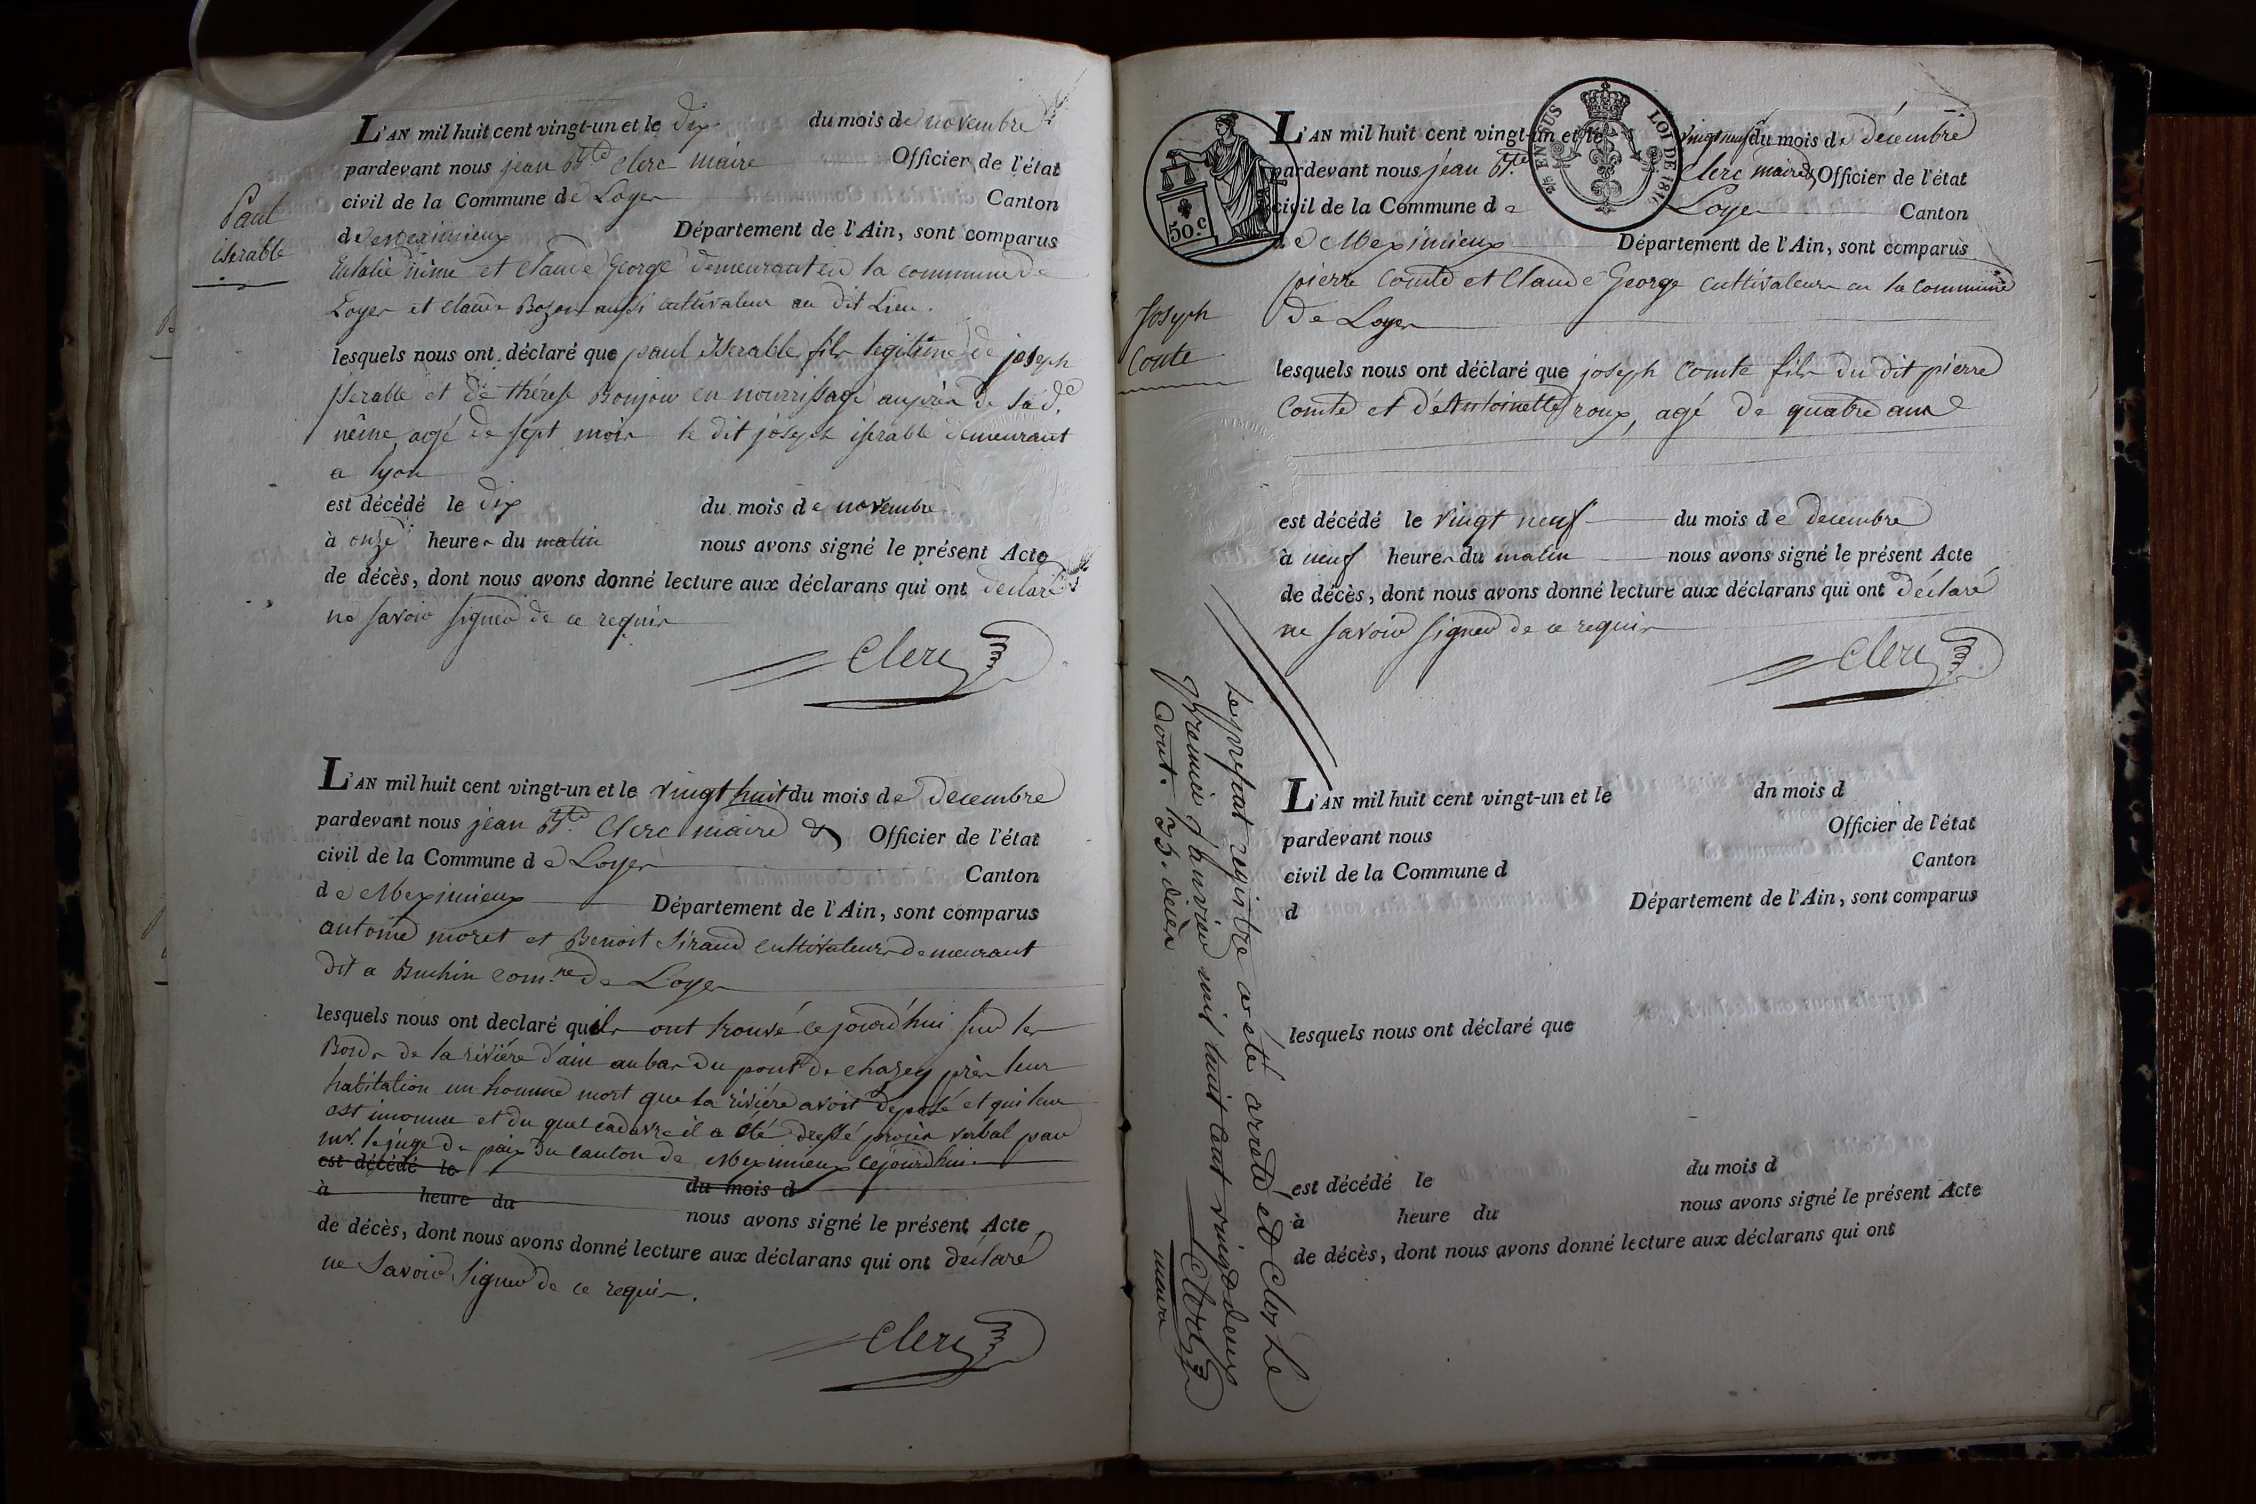 L'AN mil huit cent vingt-un et le dix du mois de novembre
pardevant nous jean Bte clerc maire Officier de l'état
civil de la Commune de Loyes Canton
de Meximieux Département de l'Ain, sont comparus
Eulalie nême et Claude George demeurant en la commune de
Loyes et claude Bozon aussi cultivateur au dit Lieu.
Paul
iserable
lesquels nous ont déclaré que paul Iserable fils legitime de joseph
iserable et de thérese Bonjour en nourrissage auprès de la de.
nême agé de sept mois le dit joseph iserable demeurant
a lyon
est décédé le dix du mois de novembre
à onze heures du matin nous avons signé le présent Acte
de décès, dont nous avons donné lecture aux déclarans qui ont déclaré
ne savoir signer de ce requis
Clerc
L'AN mil huit cent vingt-un et le vingt huit du mois de decembre
pardevant nous jean Bte. Clerc maire & Officier de l'état
civil de la Commune de Loyes Canton
de Meximieux Département de l'Ain, sont comparus
antoine moret et Benoit Siraud cultivateurs demeurant
dit a Buchin com.ne de Loyes
lesquels nous ont declaré quils ont trouvé cejourd'hui sur les
Bords de la riviére d'ain au bas du pont de chazey près leur
habitation un homme mort que la riviére avoit déposé et qui leur
est inconnu et du quel cadavre il a été dressé procès verbal par
mr. le juge de paix du canton de Meximieux cejourd'hui
est décédé le du mois d
à heure du nous avons signé le présent Acte
de décès, dont nous avons donné lecture aux déclarans qui ont déclaré
ne savoir signer de ce requis.
Clerc
50.c
25 EN SUS LOI DE 1816
L'AN mil huit cent vingt-un et le vingt neuf du mois de décembre
pardevant nous jean Bte. Clerc maire & Officier de l'état
civil de la Commune de Loyes Canton
de Meximieux Département de l'Ain, sont comparus
pierre Comte et Claude George cultivateurs en la commune
de Loyes
Joseph
Comte
lesquels nous ont déclaré que joseph Comte fils du dit pierre
Comte et d'Antoinette roux, agé de quatre ans
est décédé le vingt neuf du mois de decembre
à neuf heures du matin nous avons signé le présent Acte
de décès, dont nous avons donné lecture aux déclarans qui ont déclaré
ne savoir signer de ce requis
Clerc
Le present registre a été arreté et Clos Le
premier janvier mil huit cent vingt deux
Cont. 35. décès Clerc
maire
L'AN mil huit cent vingt-un et le dn mois d
pardevant nous Officier de l'état
civil de la Commune d Canton
d Département de l'Ain, sont comparus
lesquels nous ont déclaré que
est décédé le du mois d
à heure du nous avons signé le présent Acte
de décès, dont nous avons donné lecture aux déclarans qui ont